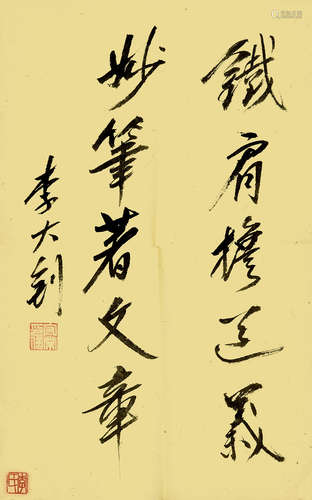 鐵肩擔道義
妙筆著文章
李大釗